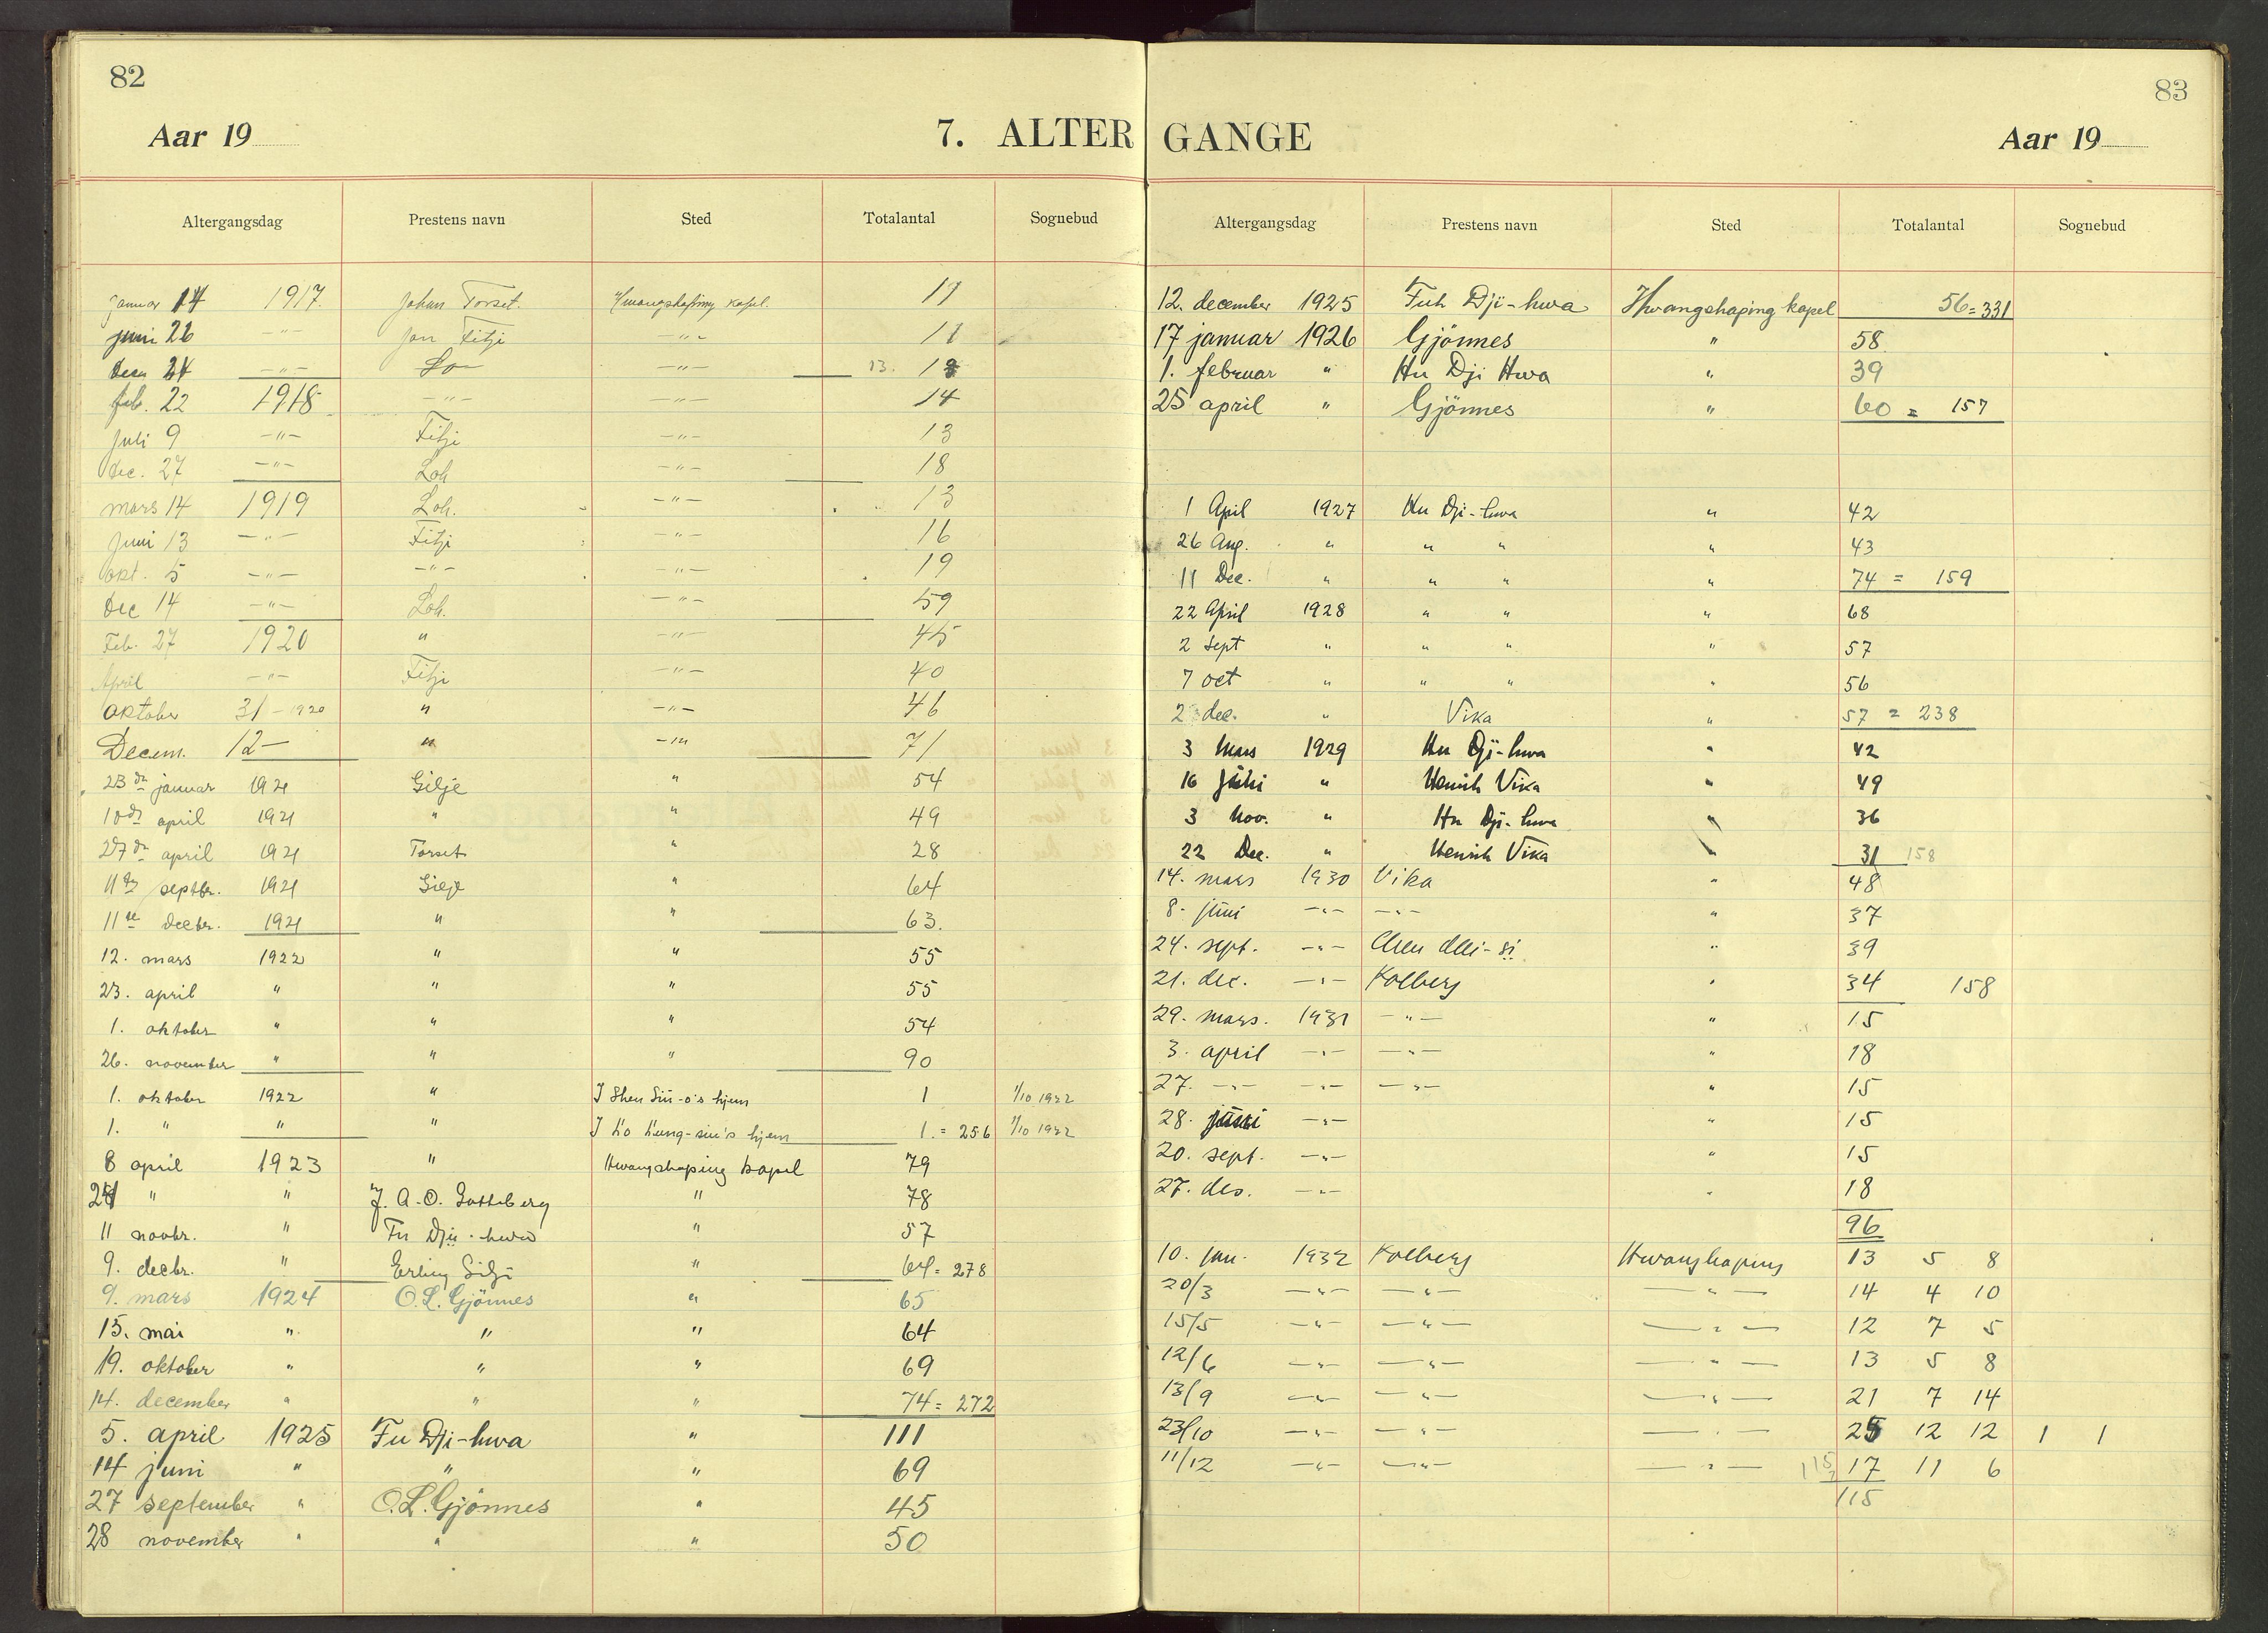 82
Aar 19
7. ALTER
Altergangsdag Prestens navn Sted Totalantal Sognebud
januar 14 1917. Johan Torset. Hwangshaping kapel. 11
juni 26 -"- Jon Fitji -"- 11
24 -"- -"- 13.
feb. 22 1918 -"- -"- 14
juli 9 -"- Fitji -"- 13
dec. 27 -"- Loh -"- 18
mars 14 1919 Loh. -"- 13
juni 13 -"- Fitji -"- 16
okt. 5 -"- -"- -"- 19
dec 14 -"- Loh. -"- 59
Feb. 27 1920 " -"- 45
April -"- Fitji -"- 40
oktober 31 - 1920 " -"- 46
Decem. 12 - " -"- 71
23de januar 1921 Gilje " 54
10de april 1921 " " 49
27de april 1921 Torset " 28
11te septbr. 1921 Gilje " 64
11te decbr. 1921 " " 63.
12. mars 1922 " " 55
23. april " " " 55
1. oktober " " " 54
26. november " " " 90
1. oktober 1922 " I Shen Siü-o's hjem 1 1/10 1922
1. " " " I hjem 1. = 256 1/10 1922
8 april 1923 " Hwangshaping kapel 79
24 " " J. A. O. Gotteberg " 78
11 novbr. " Fu Djü-hwa " 57
9. decbr. " Erling Gilje " 64 = 278
9. mars 1924 O. L. Gjönnes " 65
15. mai " " " 64
19. oktober " " " 69
14. december " " " 74 = 272
5. april 1925 Fu Dji-hwa " 111
14 juni " " " 69
27 september " O. L. Gjönnes " 45
28 november " " " 50
83
GANGE
Aar 19
Altergangsdag Prestens navn Sted Totalantal Sognebud
12. december 1925 Fuh Dji-hwa Hwangshaping kapel 56 = 331
17 januar 1926 Gjönnes " 58
1. februar " Hu Dji Hwa " 39
25 april " Gjönnes " 60 = 157
1 April 1927 Hu Dji-hwa " 42
26 Aug. " " " " 43
11 Dec. " " " " 74 = 159
22 April 1928 " " " 68
2 Sept " " " " 57
7 oct " " " " 56
23 dec. " Vika " 57 = 238
3 Mars 1929 Hu Dji-hwa " 42
16 Juni " Henrik Vika " 49
3 Nov. " Hu Dji-hwa " 36
22 Dec. " Henrik Vika " 31 158
14. mars 1930 Vika " 48
8. juni -"- -"- " 37
24. sept. -"- " 39
21. dec. -"- Kolberg " 34 158
29. mars. 1931 -"- " 15
3. april -"- -"- " 18
27. -"- -"- -"- " 15
28. juni -"- " 15
20. sept. -"- " 15
27. des. -"- " 18
96
10. jan. 1932 Kolberg Hwangshaping 13 5 8
20/3 -"- -"- -"- 14 4 10
15/5 -"- -"- -"- 12 7 5
12/6 -"- -"- -"- 13 5 8
13/9 -"- -"- -"- 21 7 14
23/10 -"- -"- -"- 25 12 12 1 1
11/12 -"- -"- -"- 115 17 11 6
115